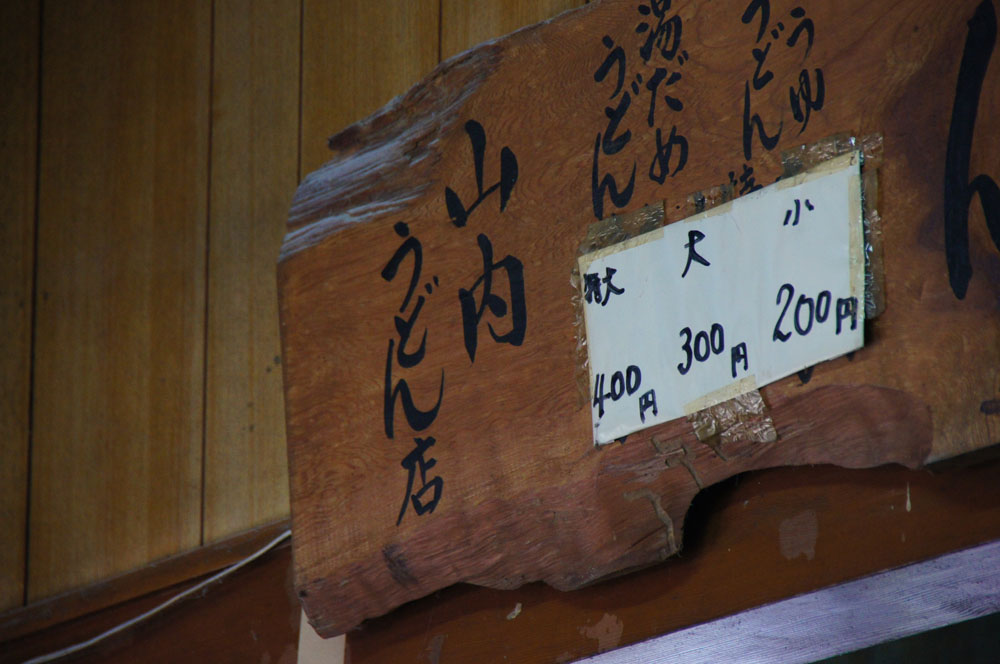 うゆ
うどん
湯だめ
うどん
小 200円
大 300円
特大 400円
山内
うどん店